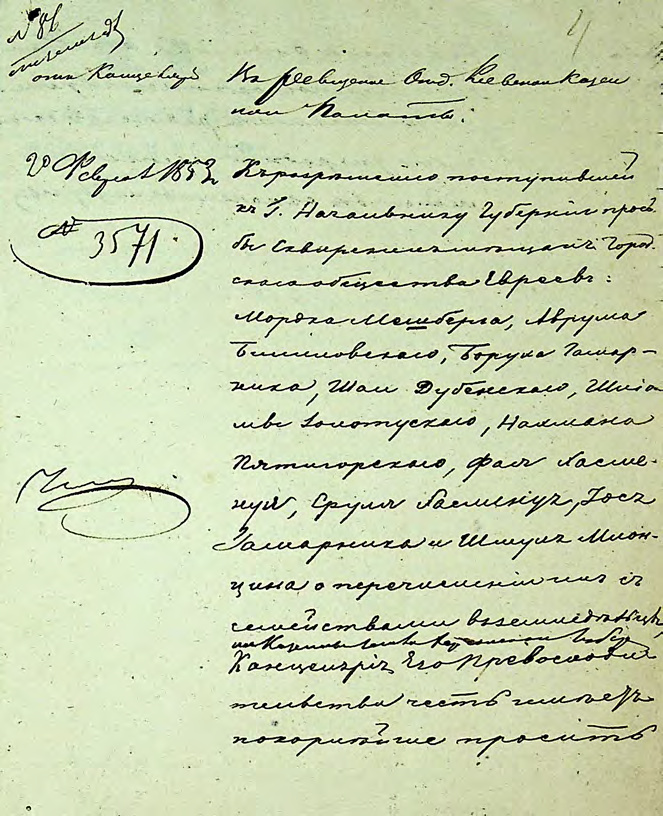 N 86
4
Въ Ревизское Отд. Киевской Казен
ной Палаты.
20 Февраля 1853
N 3571.
Къ разрѣшенію поступившей
къ Г. Начальнику Губерніи прось
бы Сквирскихъ мѣщанъ Город
скаго общества Евреевъ:
Мордка Мешберга, Аврума
Билиловскаго, Боруха Гамар-
ника, Шаи Дубенскаго, Шлё
мы Золотускаго, Нахмана
Пятигорскаго,
Сруля
Гамарника и Шмуля
о перечисленіи ихъ съ
семействами въ земледѣльцы
Канцелярія Его Превосходи
тельства честь имѣетъ
покорнѣйше просить